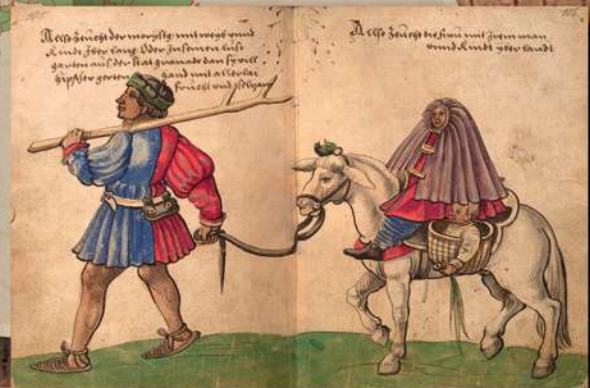 Allso Zeucht der mit weyb vnnd
Kindt Iber Oder In seinen lust
garten aus der stat granade dan sy vill
gerten hand mit allerlai
frücht vnd
Allso Zeucht die fraw mit Irem man
vnnd Kindt yber landt